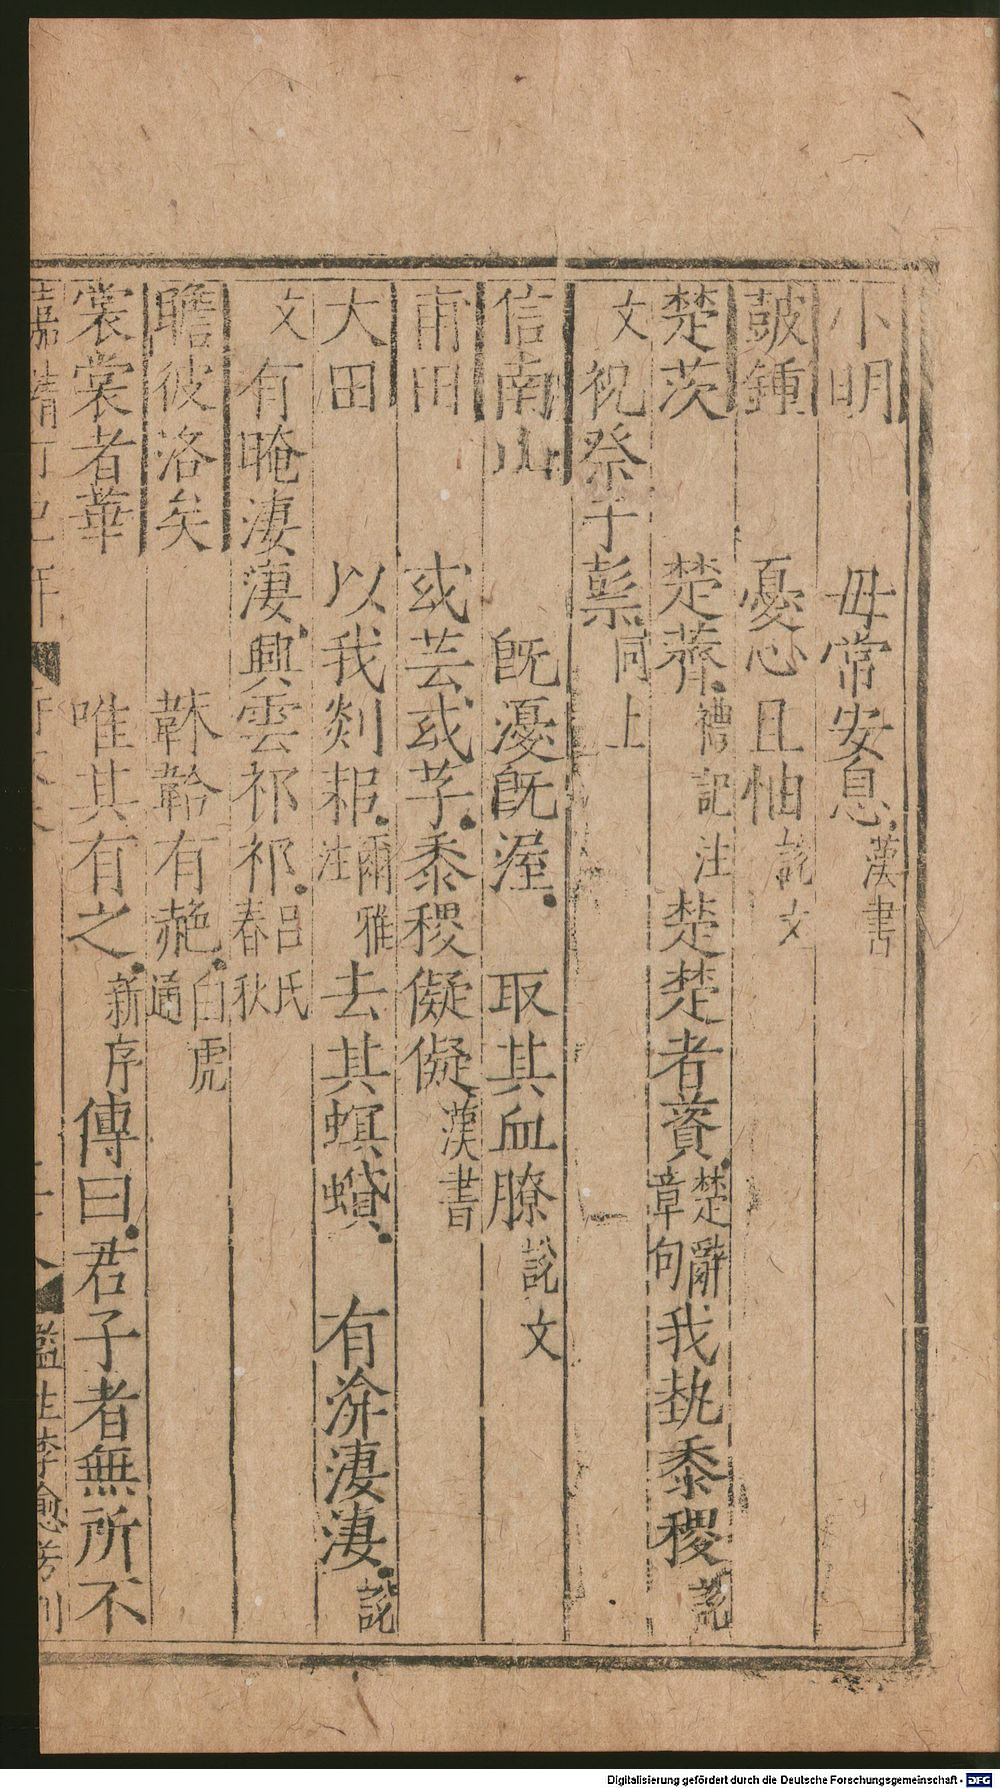 小明 毋常安息漢書
皷鍾 憂心且怞說文
楚茨 楚薺禮記注 楚楚者薋楚辭章句 我蓺黍稷說
文 祝祭于𥛱同上
信南山 旣瀀旣渥 取其血膫說文
甫田 或芸或芓黍稷儗儗漢書
大田 以我剡耜爾雅注 去其螟蟘 有渰淒淒說
文 有晻淒淒興雲祁祁呂氏春秋
瞻彼洛矣 韎韐有赩白虎通
裳裳者華 唯其有之新序 傳曰君子者無所不
嘉靖 年 監生李 刊
Digitalisierung gefördert durch die Deutsche Forschungsgemeinschaft - DFG